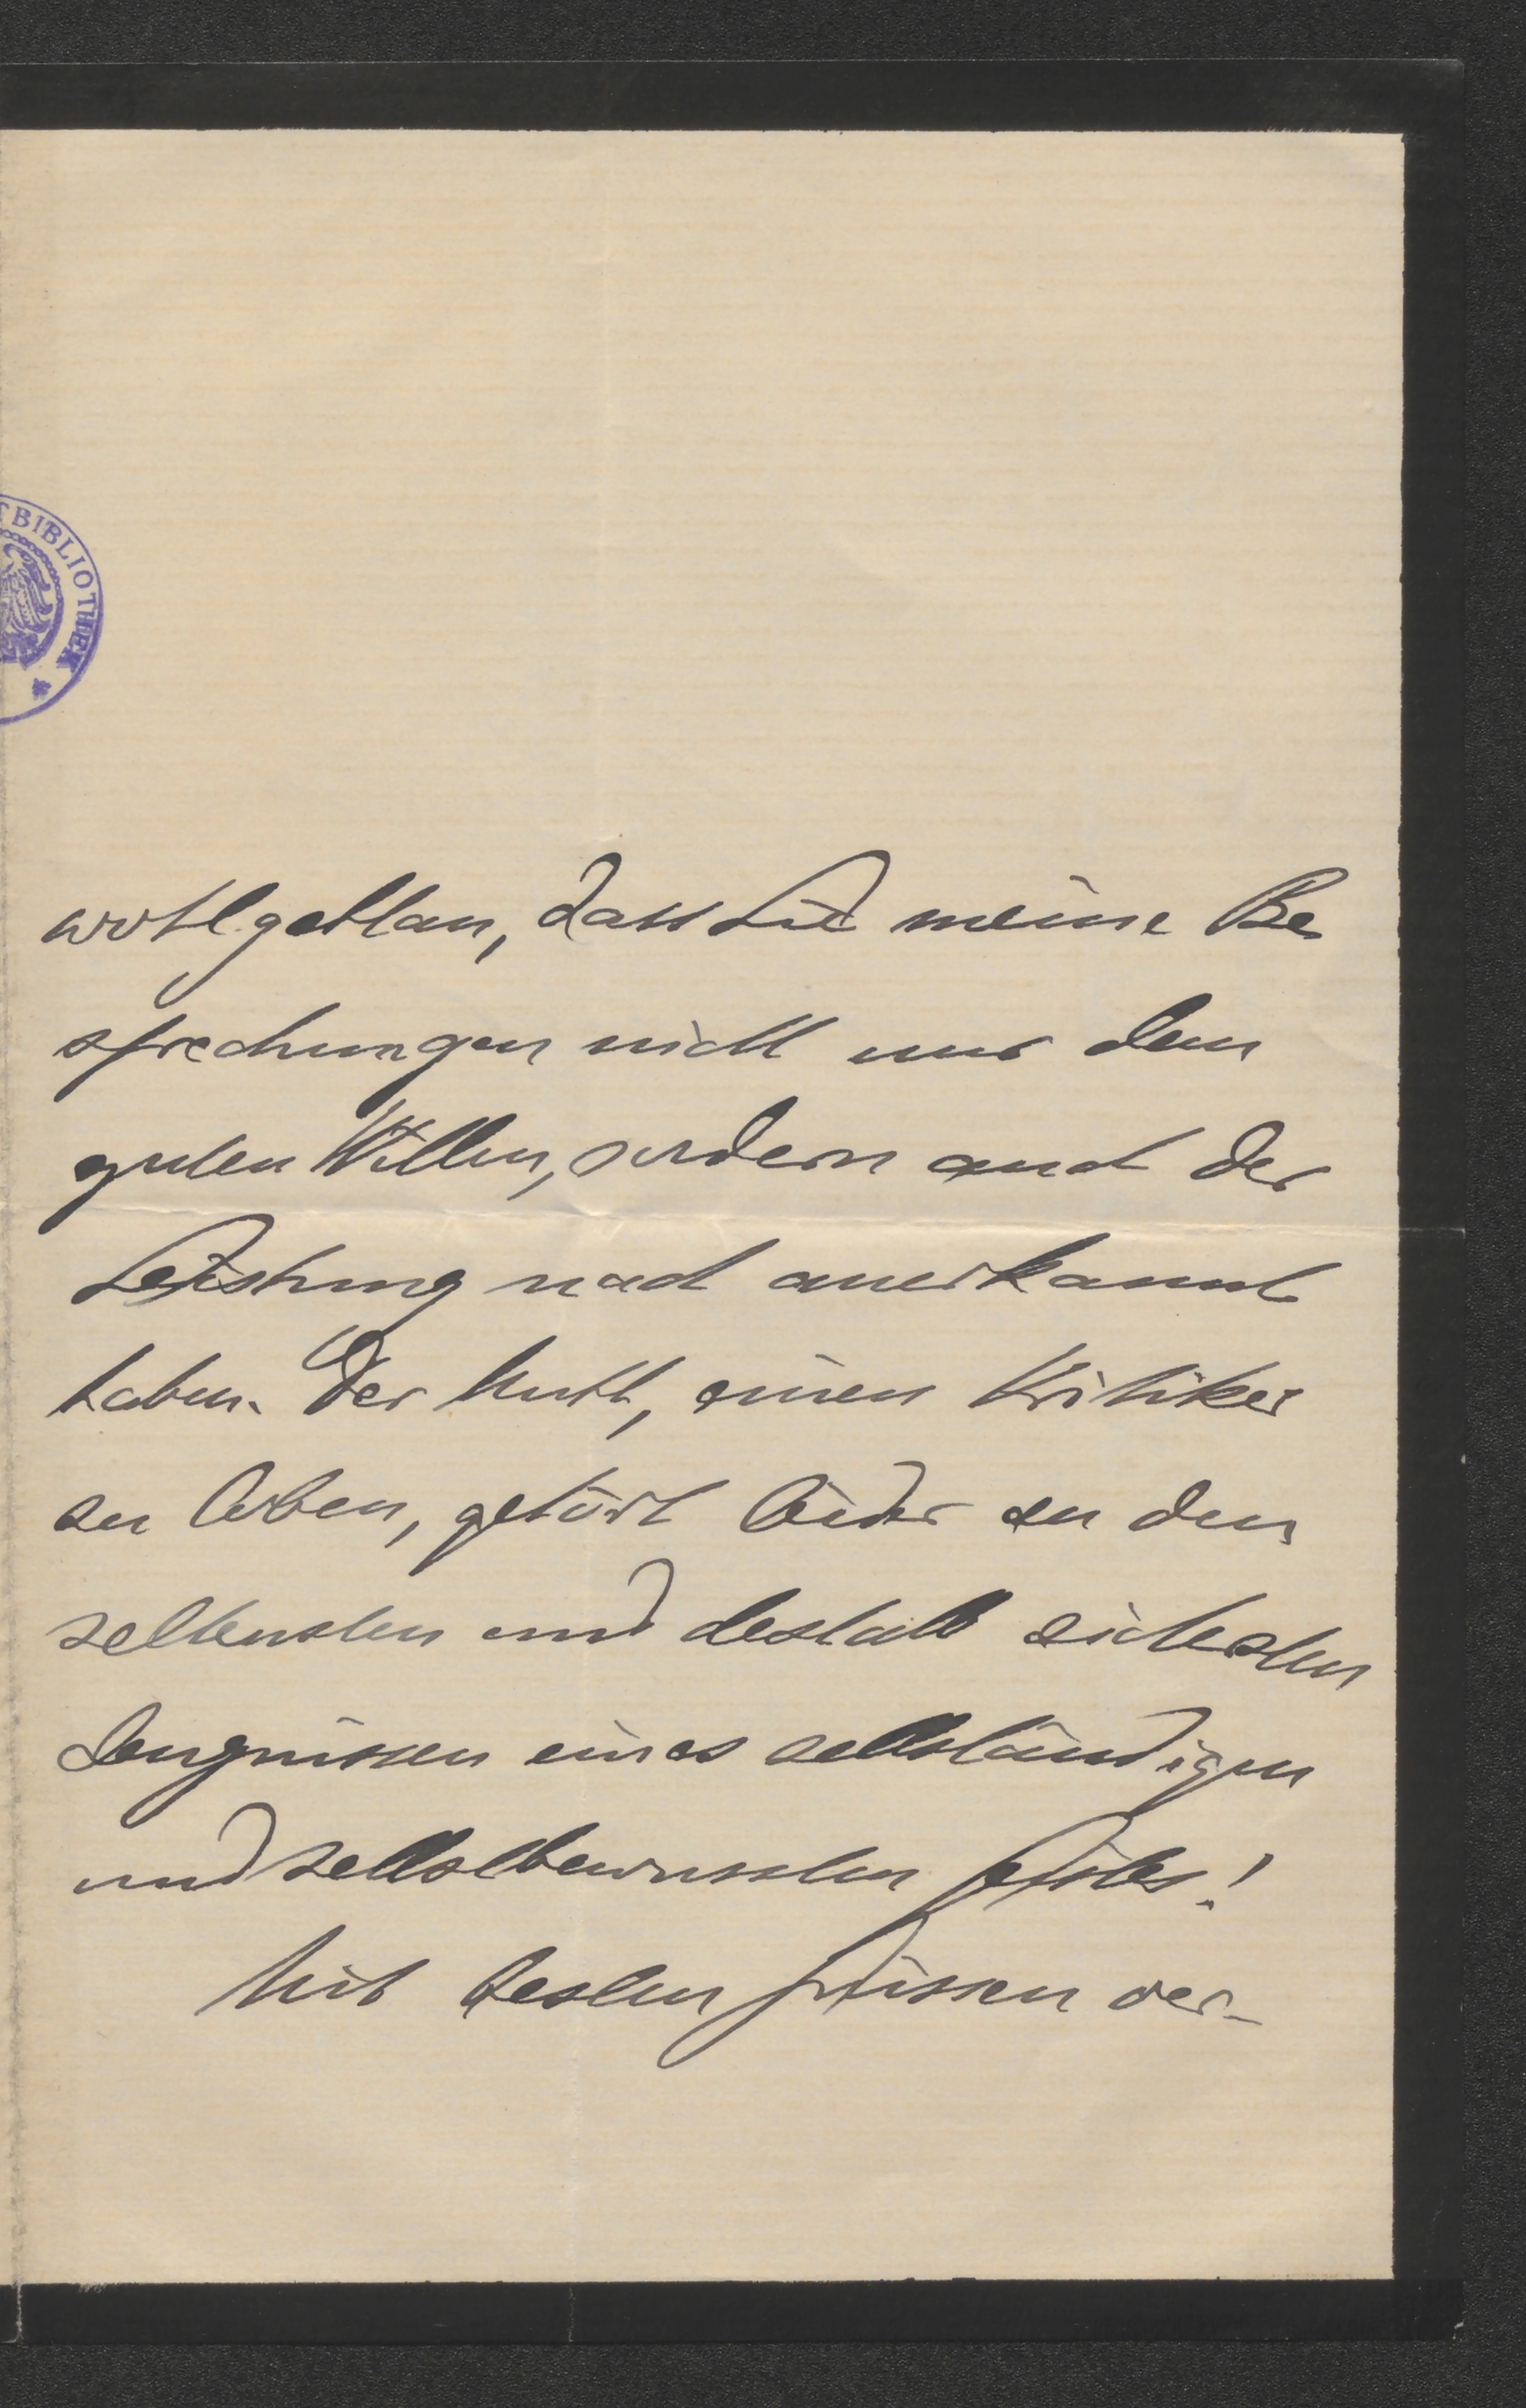 BIBLIOTHEK
wohlgethan, dass Sie meine Be
sprechungen nicht nur dem
guten Willen, sondern auch der
Leistung nach anerkannt
haben. Der Muth, einen Kritiker
zu loben, gehört leider zu den
seltensten und deshalb sichersten
Zeugnissen eines selbständigen
und selbstbewussten Geistes!
Mit besten Grüssen ver-